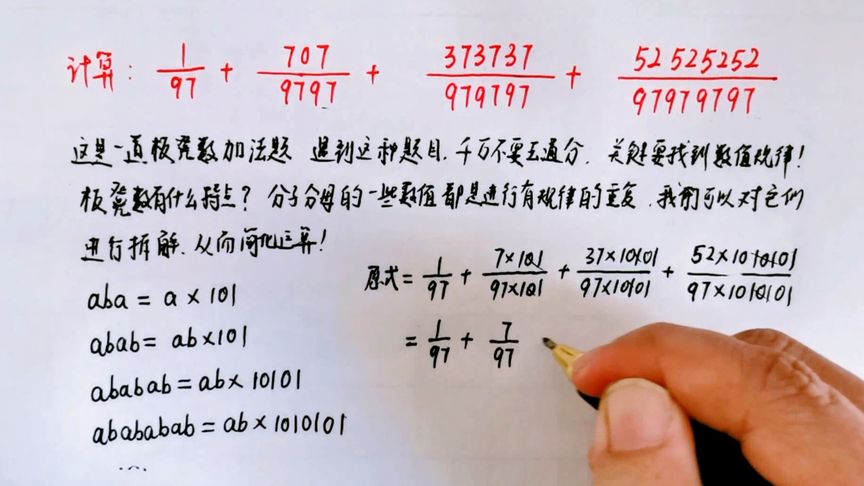 计算: 1/97 + 707/9797 + 373737/979797 + 52525252/97979797
这是一道板凳数加法题 遇到这种题目,千万不要去通分,关键要找到数值规律!
板凳数有什么特点? 分子分母的一些数值都是进行有规律的重复,我们可以对它们
进行拆解、从而简化运算!
原式= 1/97 + 7×101/97×101 + 37×10101/97×10101 + 52×1010101/97×1010101
aba = a × 101
= 1/97 + 7/97
abab= ab×101
ababab = ab× 10101
abababab = ab × 1010101
...